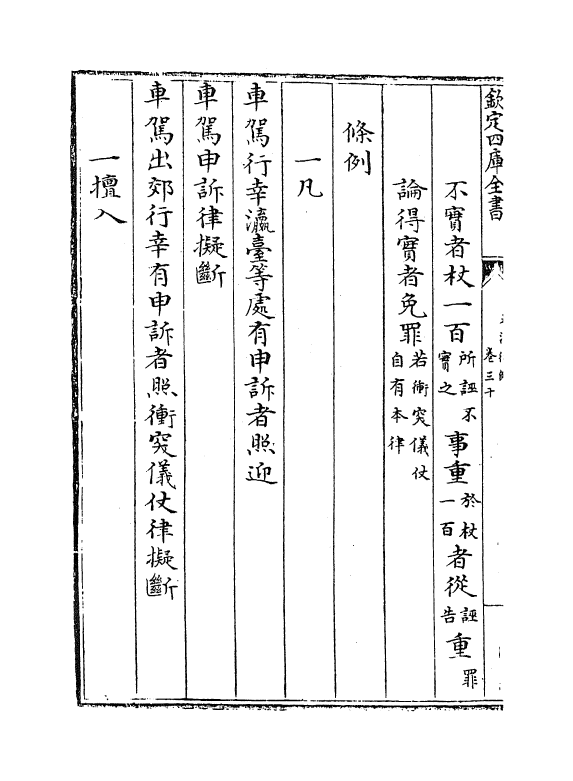 欽定四庫全書
卷三十
不實者杖一百所誣不實之事重於杖一百者從誣告重罪
論得實者免罪若衝突儀仗自有本律
條例
一凡
車駕行幸瀛臺等處有申訴者照迎
車駕申訴律擬斷
車駕出郊行幸有申訴者照衝突儀仗律擬斷
一擅入